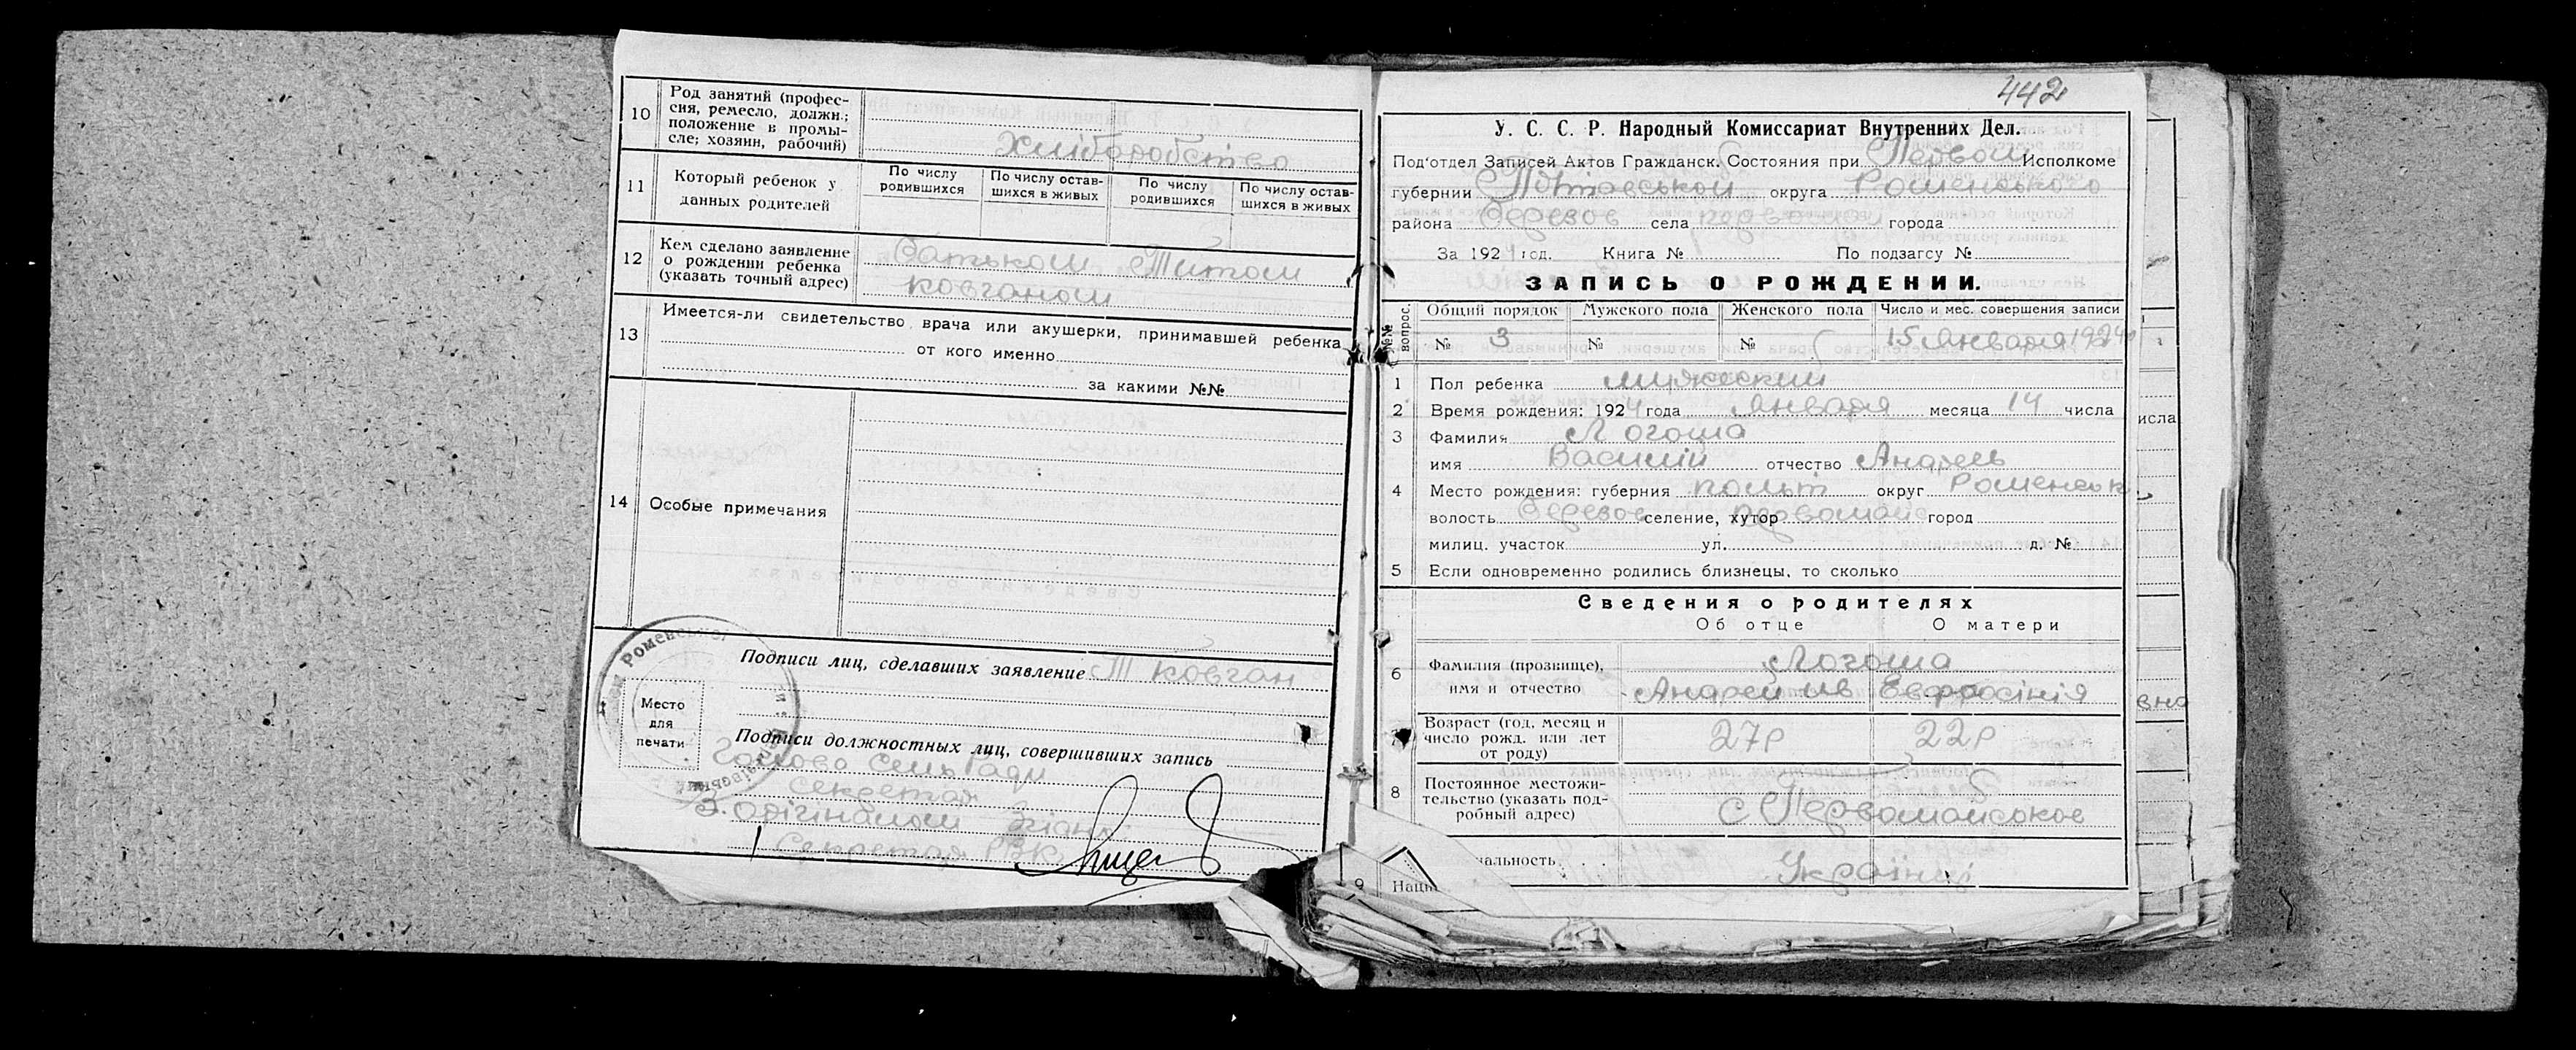 10 Род занятий (профес-
сия, ремесло, должн.;
положение в промы-
сле; хозяин, рабочий)
Хліборобство
11 Который ребенок у
данных родителей
По числу
родившихся
По числу остав-
шихся в живых
По числу
родившихся
По числу остав-
шихся в живых
12 Кем сделано заявление
о рождении ребенка
(указать точный адрес)
Батьком Титом
Ковганом
13 Имеется-ли свидетельство врача или акушерки, принимавшей ребенка
от кого именно
за какими №№
14 Особые примечания
Подписи лиц, сделавших заявление Т Ковган
Место
для
печати
Подписи должностных лиц, совершивших запись
Голова Сель Ради
Секретар
З оригіналом
Секретар РВК
442
У. С. С. Р. Народный Комиссариат Внутренних Дел.
Под'отдел Записей Актов Гражданск. Состояния при Первом Исполкоме
губернии Полтавськой округа Роменського
района Березов села города
За 1924 год. Книга № По подзагсу №
ЗАПИСЬ О РОЖДЕНИИ.
№№ вопрос.
Общий порядок Мужского пола Женского пола Число и мес. совершения записи
№ 3 № № 15 Января 1924
1 Пол ребенка мужеский
2 Время рождения: 1924 года Января месяца 14 числа
3 Фамилия Логоша
имя Василій отчество Андрев
4 Место рождения: губерния Польт округ Роменськ
волость Березов селение, хутор Первомайс город
милиц. участок ул. д. №
5 Если одновременно родились близнецы, то сколько
Сведения о родителях
Об отце О матери
6 Фамилия (прозвище),
имя и отчество
Логоша
Андрей Ив Евфросінія
Возраст (год, месяц и
число рожд. или лет
от роду)
27р 22р
8 Постоянное местожи-
тельство (указать под-
робный адрес)
с Первомайськое
9 Наци
альность
Україн
исла
вна